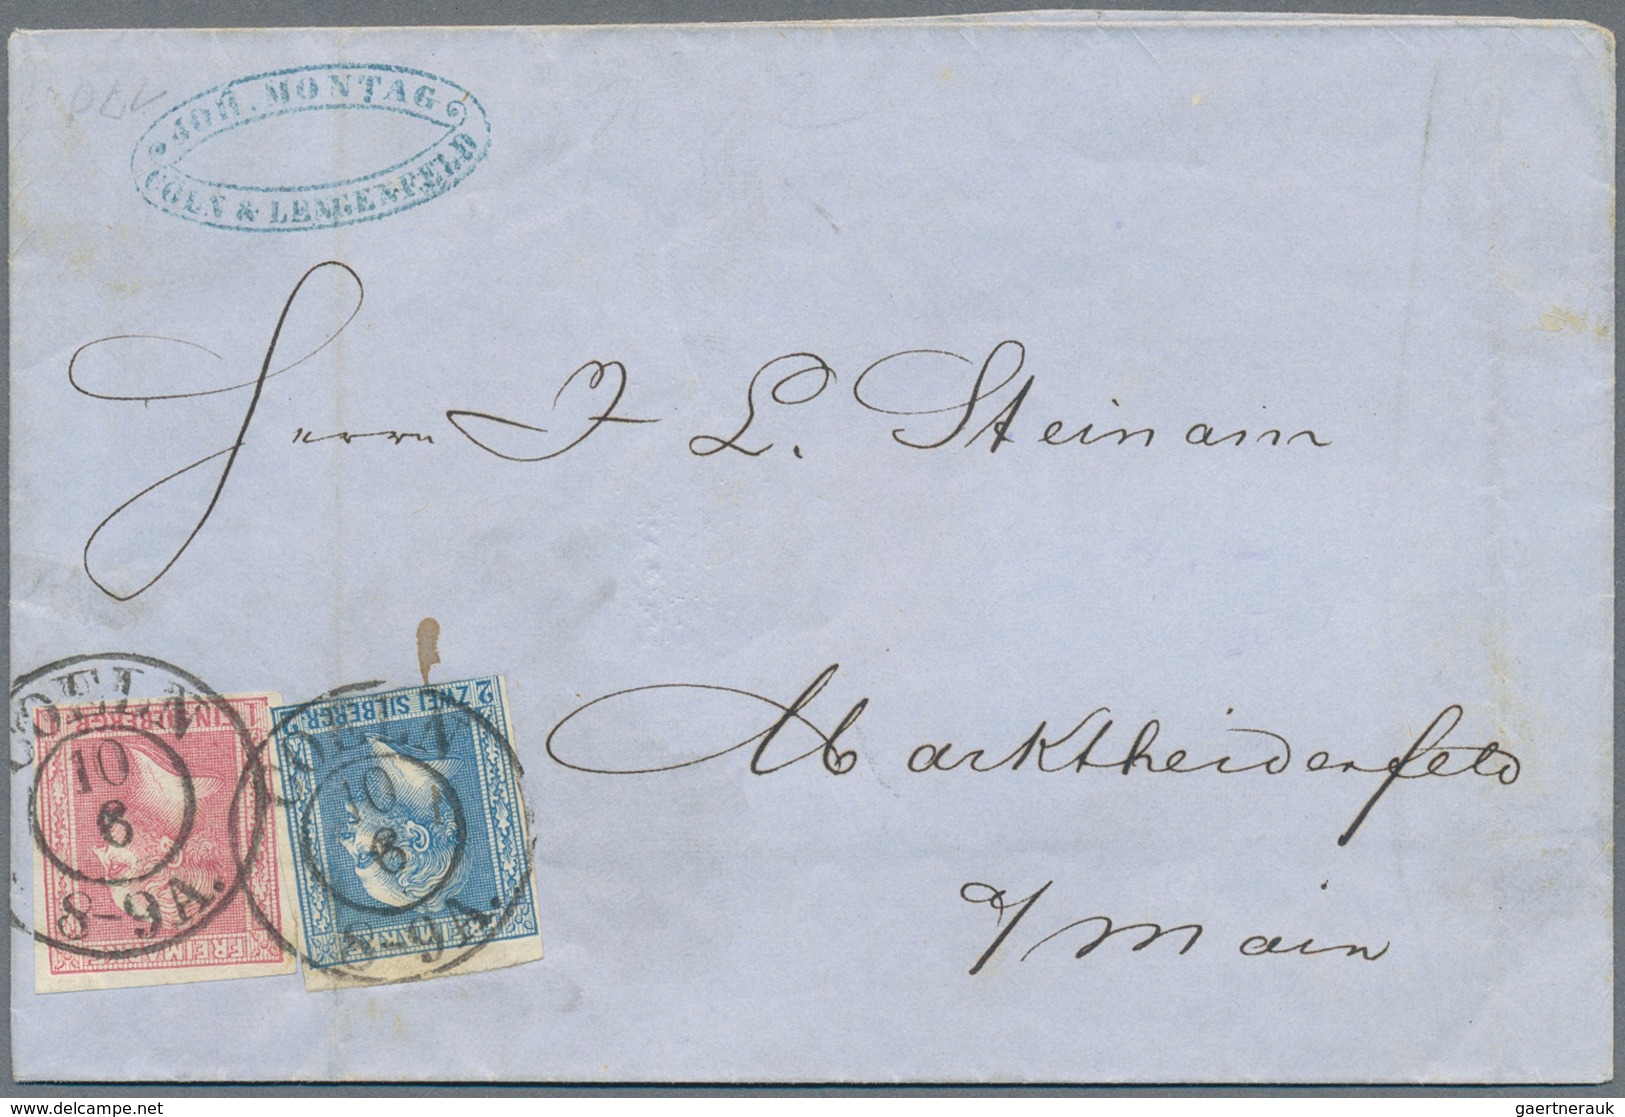 JOH. MONTAG
CÖLN & LENGENFELD
Herrn J L. Steinam
Marktheidenfeld
a/Main
COELN
10
6
8-9A.
COELN
10
6
8-9A.
1 EIN SILBERGR.
FREIMARKE
2 ZWEI SILBERGR. 2
FREIMARKE
www.delcampe.net
gaertnerauk